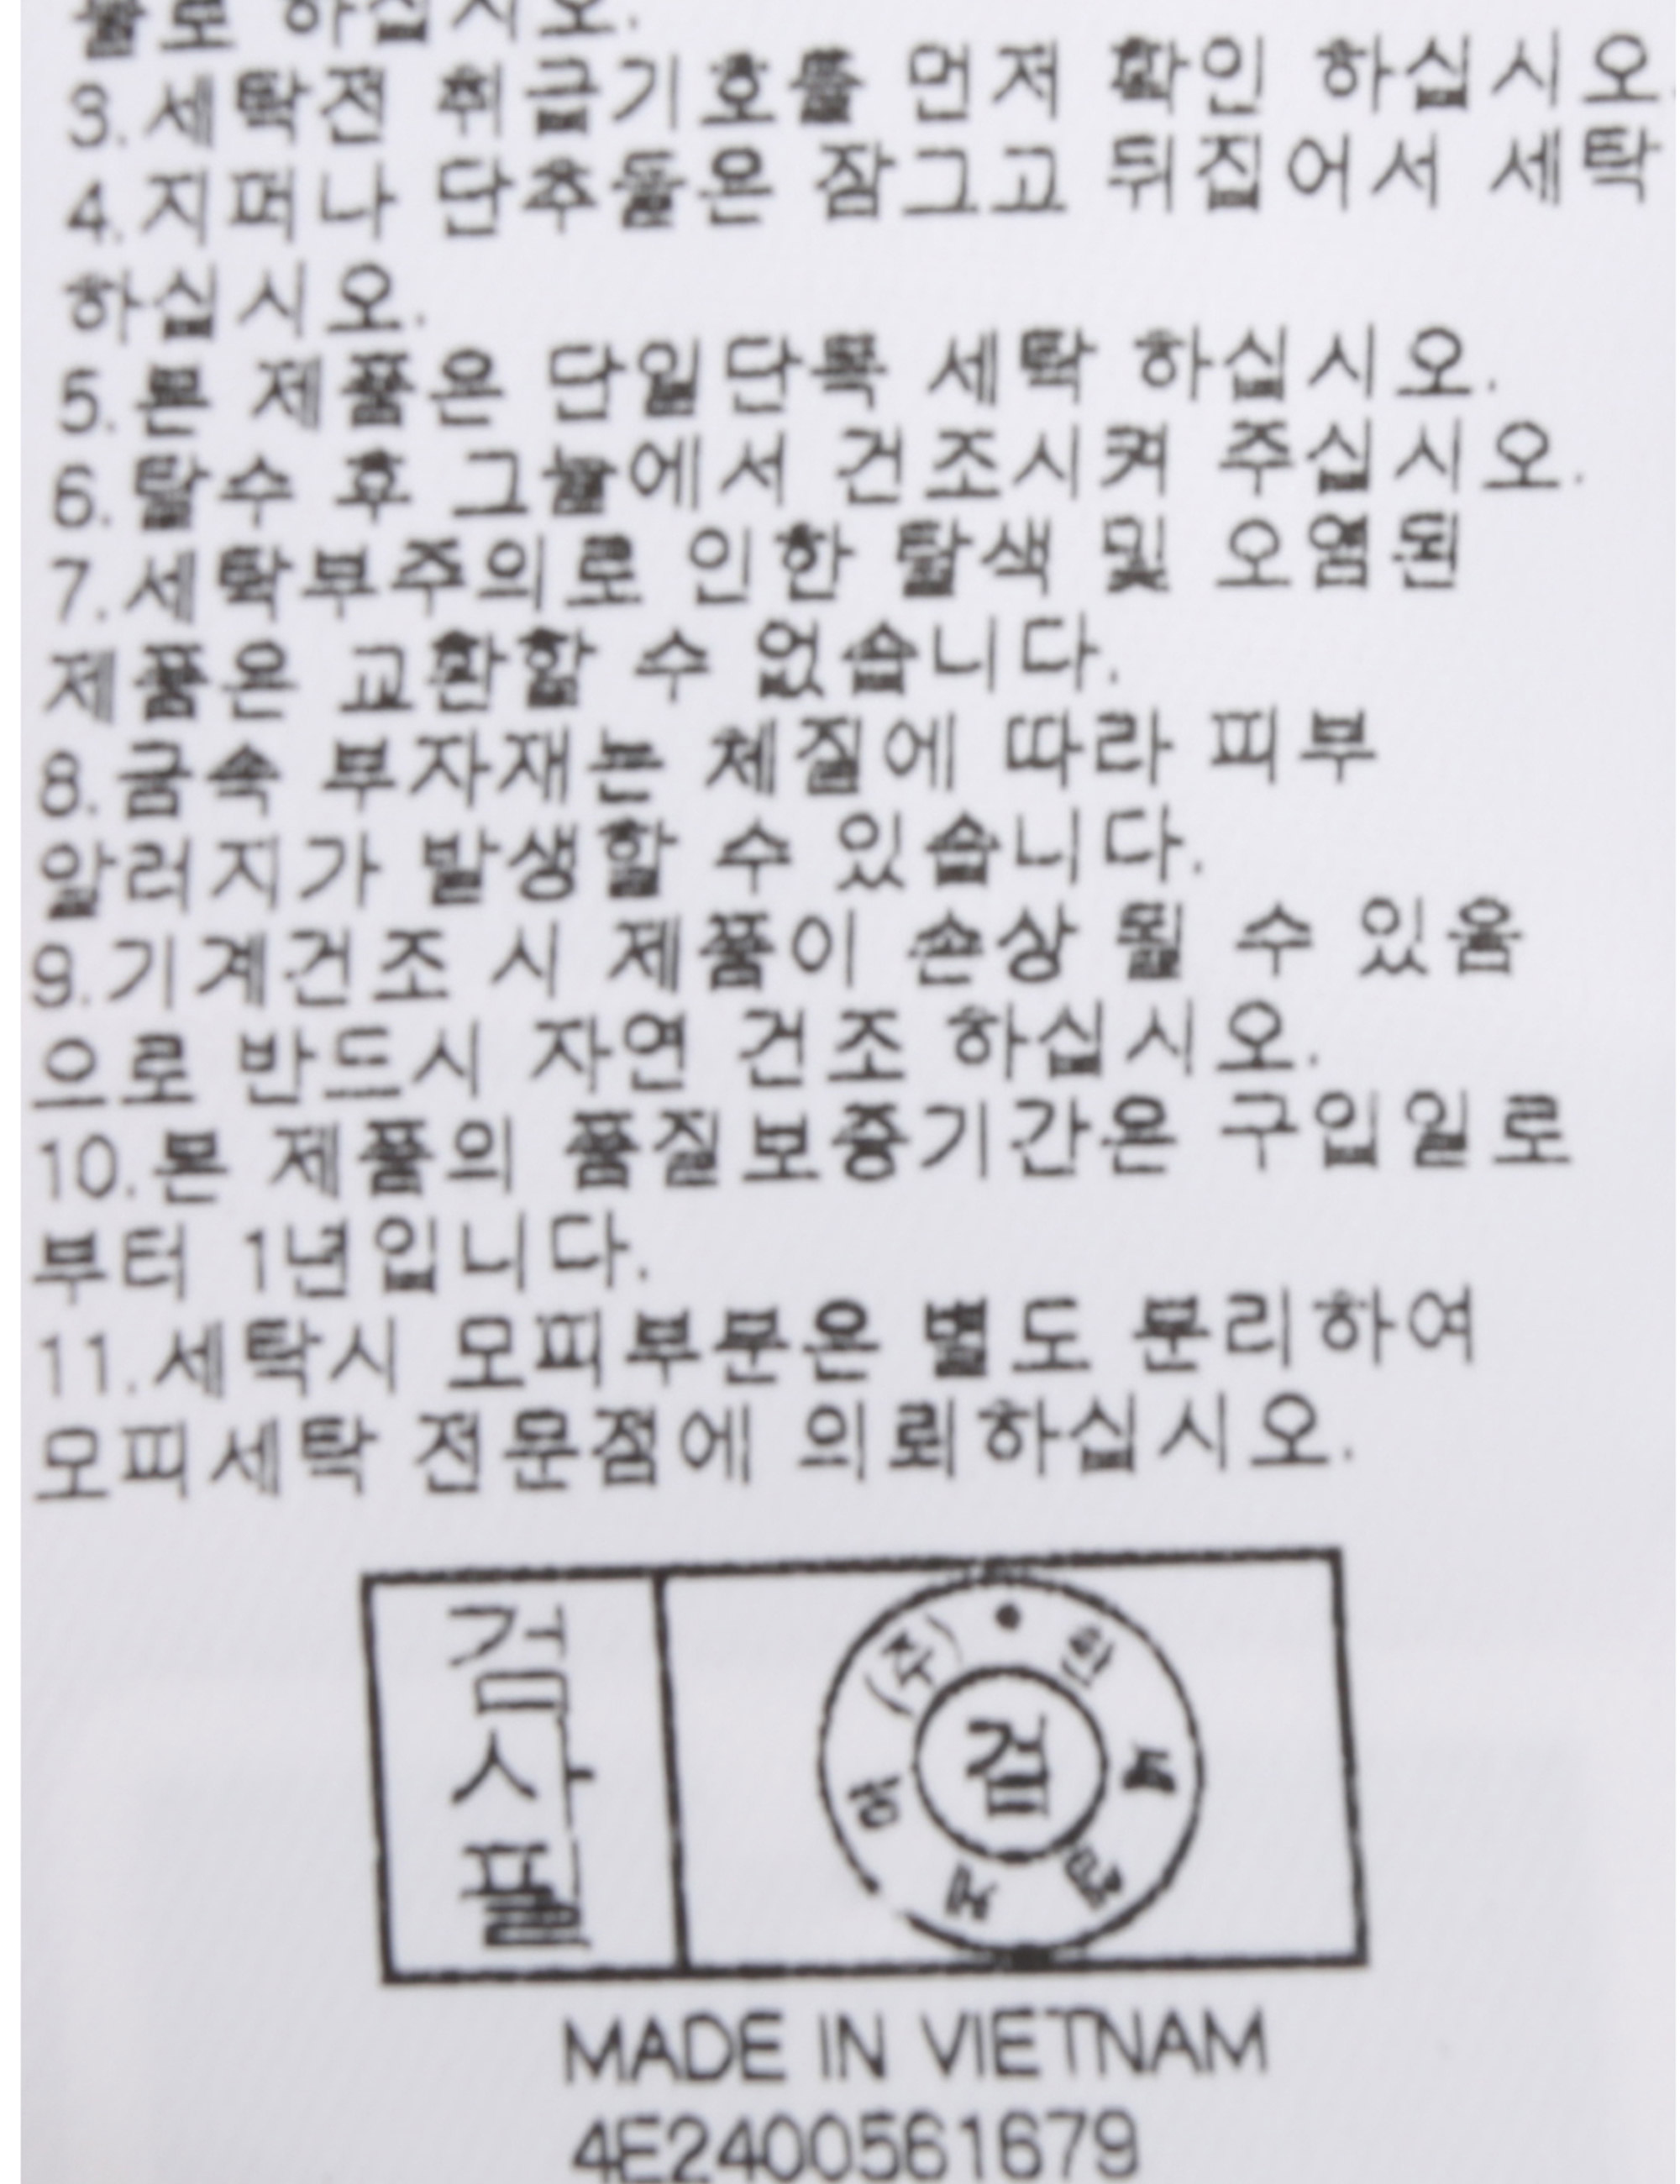 물로 하십시오.
3.세탁전 취급기호를 먼저 확인 하십시오.
4.지퍼나 단추들은 잠그고 뒤집어서 세탁
하십시오.
5.본 제품은 단일단독 세탁 하십시오.
6.탈수 후 그늘에서 건조시켜 주십시오.
7.세탁부주의로 인한 탈색 및 오염된
제품은 교환할 수 없습니다.
8.금속 부자재는 체질에 따라 피부
알러지가 발생할 수 있습니다.
9.기계건조 시 제품이 손상 될 수 있음
으로 반드시 자연 건조 하십시오.
10.본 제품의 품질보증기간은 구입일로
부터 1년입니다.
11.세탁시 모피부분은 별도 분리하여
모피세탁 전문점에 의뢰하십시오.
검사필
(주)
검
MADE IN VIETNAM
4E2400561679